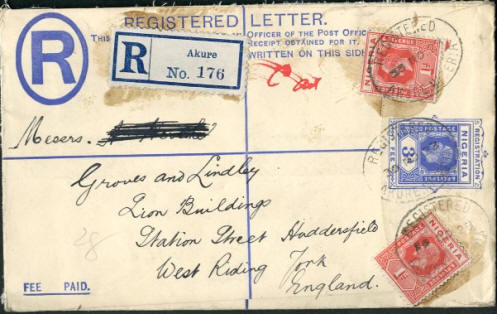 REGISTERED LETTER.
THIS
OFFICER OF THE POST OFFICE
RECEIPT OBTAINED FOR IT.
WRITTEN ON THIS SIDE
R
R
Akure
No. 176
NIGERIA
1D
REGISTERED
POSTAGE
NIGERIA
REGISTRATION
FEE
3D
REGISTERED
AKURE
Messrs.
Groves and Lindley
Lion Buildings
Station Street Huddersfield
West Riding York
England.
28
REGISTERED
NIGERIA
1D
FEE PAID.